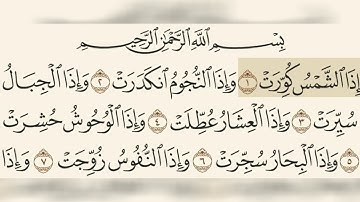 بِسْمِ ٱللَّهِ ٱلرَّحْمَٰنِ ٱلرَّحِيمِ
إِذَا ٱلشَّمْسُ كُوِّرَتْ ١ وَإِذَا ٱلنُّجُومُ ٱنكَدَرَتْ ٢ وَإِذَا ٱلْجِبَالُ
سُيِّرَتْ ٣ وَإِذَا ٱلْعِشَارُ عُطِّلَتْ ٤ وَإِذَا ٱلْوُحُوشُ حُشِرَتْ
٥ وَإِذَا ٱلْبِحَارُ سُجِّرَتْ ٦ وَإِذَا ٱلنُّفُوسُ زُوِّجَتْ ٧ وَإِذَا